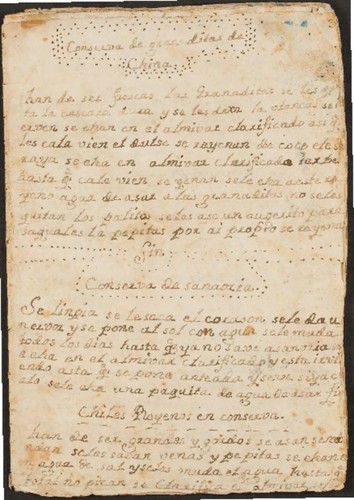 Conserva de granaditas de
China
han de ser frescas las Granaditas se les
ta la cascara dura y se les dexa la
erven se echan en el almivar clarificado asi q
les cala vien el dulse se reyenan de coco
raya se echa en almivar clarificado
hasta q cale vien, se yenan
yeno agua de asar a las granaditas no se les
quitan los palito, se les ase un augerito para
sacarles la pepitas por ai propio se reyenan
Fin
Conserva de sanaoria
Se linpia se le saca el corason, se le da u
nervor y se pone al sol con agua se le muda
todos los dias hasta q ya no save asanoria
echa en el almivar clarificado y esta irvi
endo asta q se pone
elo se le echa una paguita de agua de asar fin
Chiles Reyenos en conserva.
han de ser grandes y gordos se asan
se les sacan venas y pepitas se echan
agua de sal y se les muda el agua hasta q
total no pican se Clarifica el almivar